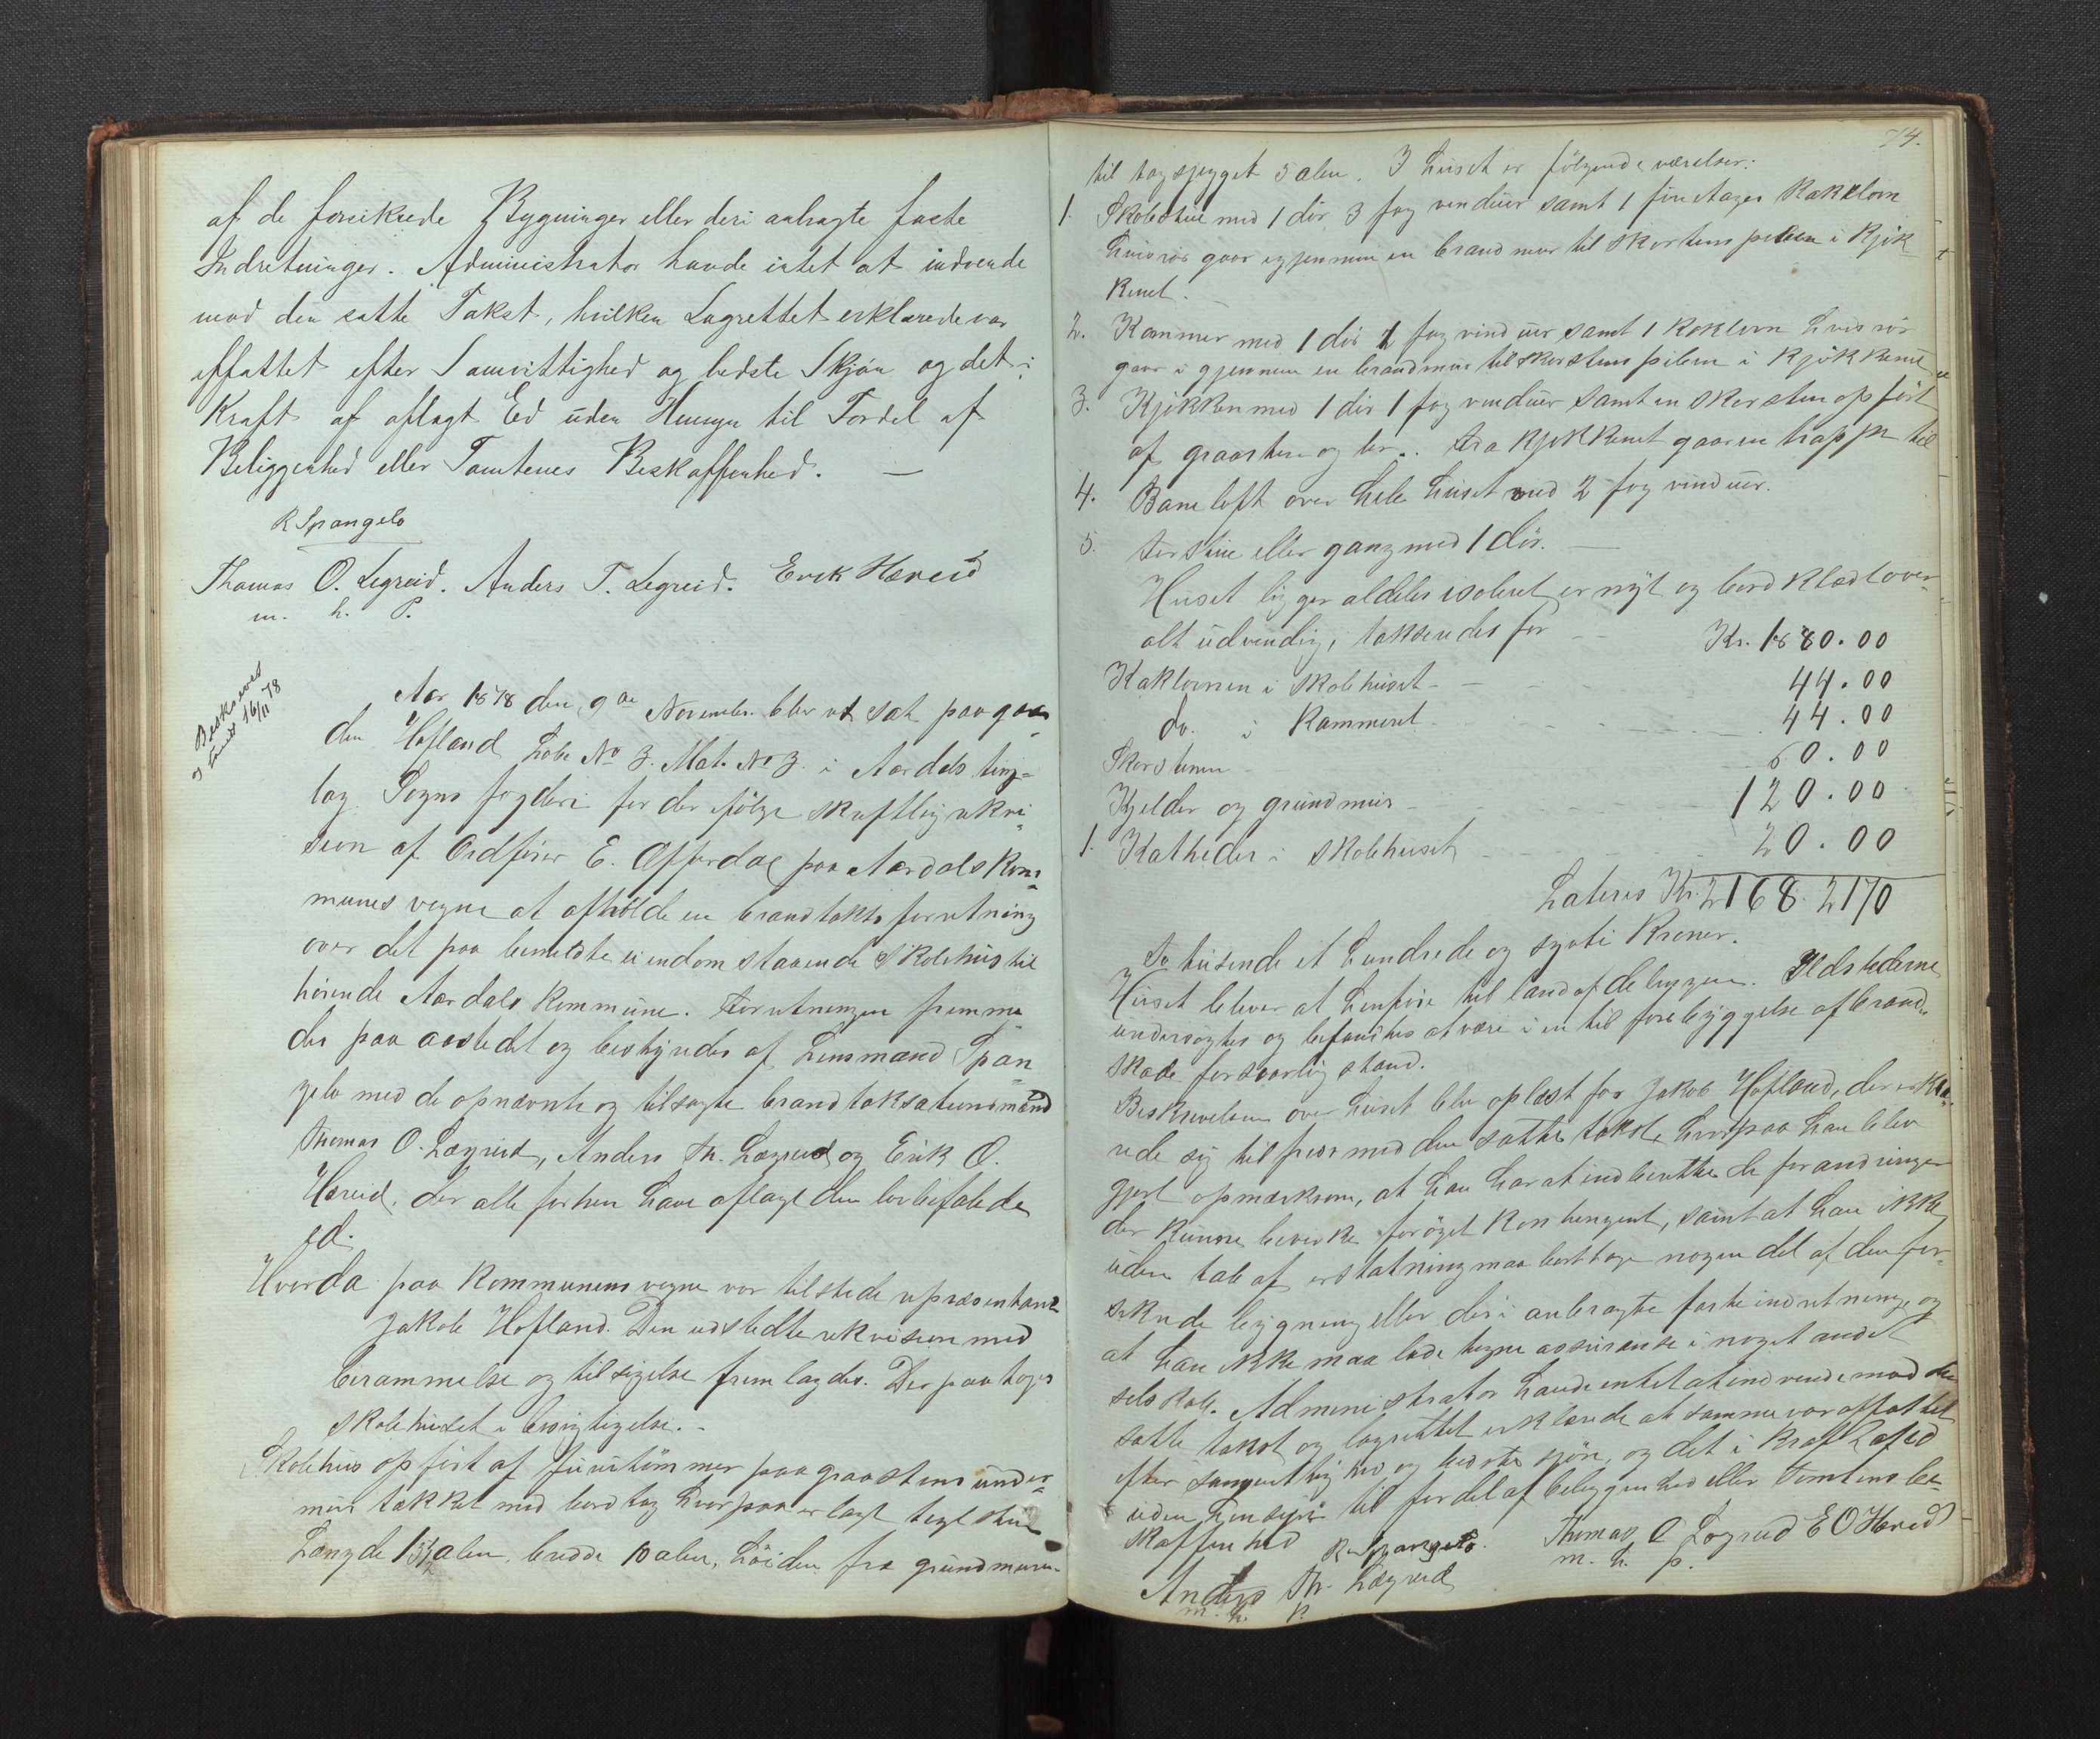 af de forsikrede Bygninger eller deri anbragte faste
Indretninger. Administrator havde intet at indvende
mod den satte Takst, hvilken Lagrettet erklærede var
affattet efter Samvittighed og bedste Skjøn og det i
Kraft af aflagt Ed uden Hensyn til Fordel af
Beliggenhed eller Tomtenes Beskaffenhed. —
R Spangelo
Thomas O. Legreid. Anders T. Legreid. Erik Hæreid
m. h. P.
Beskreves
16/11 78
Aar 1878 den 9de November blev ret sat paa gaar-
den Hofland Løbe No 3. Mat. No 3. i Aardals ting-
lag Sogns fogderi for der ifølge skriftlig rekvi-
sion af Ordfører E. Offerdal paa Aardals Kom-
munes vegne at afholde en brandtakts forretning
over det paa bemeldte eiendom staaende Skolehus til
hørende Aardals Kommune. Forretningen fremme-
des paa aastedet og bestyredes af Lensmand Span-
gelo med de opnævnte og tilsagte brandtaksationsmænd
Thomas O. Lægreid, Anders Th. Lægreid og Erik O.
Hæreid. der alle forhen have aflagt den lovbefalede
ed.
Hvorda paa Kommunens vegne var tilstede repræsentant
Jakob Hofland. Den udstedte rekvision med
berammelse og tilsigelse fremlagdes. Derpaa toges
skolehuset i besigtigelse. -
Skolehus opført af furutømmer paa graastens under-
mur tækket med bord tag hvorpaa er lagt tagl sten
Længde 13 1/2 alen, bredde 10 alen, høiden fra grundmuren-
74.
til tagskjegget 5 alen. I huset er følgende værelser:
1. Skolestue med 1 dør, 3 fag vinduer samt 1 fire etages Kakelovn
hvis rør gaar igjennem en brandmur til skorstenspiben i Kjøk-
kenet.
2. Kammer med 1 dør 2 fag vinduer samt 1 Kaklovn hvis rør
gaar igjennem en brandmur til skorstenspiben i Kjøkkenet
3. Kjøkken med 1 dør 1 fag vinduer samt en skorsten opført
af graasten og ler.. Fra Kjøkkenet gaar en trappe til
4. Bare loft over hele huset med 2 fag vinduer.
5. Forstue eller gang med 1 dør. —
Huset ligger aldeles isoleret, er nyt og bordklædt over-
alt udvendig, takseredes for Kr. 1880.00
Kaklovnen i Skolehuset 44.00
do. i Kammeret 44.00
Skorstenen 60.00
Kjelder og grundmur 120.00
1. Katheder i skolehuset 20.00
Lateris Kr. 2168. 2170
To tusende et hundrede og sytti Kroner.
Huset bliver at henføre til landafdelingen. Ildstederne
undersøgtes og befandtes at være i en til forebyggelse af brand-
skade forsvarlig stand.
Beskrivelsen over huset blev oplæst for Jakob Hofland, der erklæ-
rede sig tilfreds med den satte takst, hvorpaa han blev
gjort opmærksom, at han har at indberette de forandringer
der kunne bevirke forøget Kontingent, samt at han ikke
uden tab af erstatning maa borttage nogen del af den for-
sikrede bygning eller deri anbragte faste indretninge og
at han ikke maa lade tegne assuranse i noget andet
selskab. Administrator havde intet at indvende mod den
satte takst og lagrettet erklærede at samme var affattet
efter samvittighed og bedste skjøn, og det i Kraft af ed
uden hensyn til fordel af beliggenhed eller Tomtens be-
skaffenhed R Spangelo. Thomas O Lægreid E O Hæreid
m. h. p.
Anders Th. Lægreid
m. h. p.